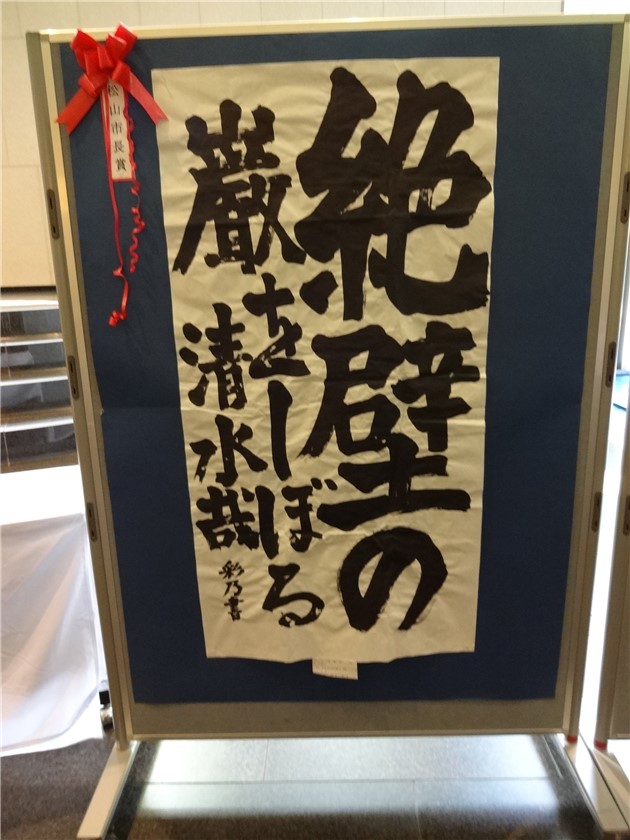 絶壁の
巌をしぼる
清水哉
彩乃書
松山市長賞